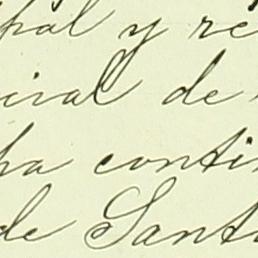 pal y re
cial de
ha conti
de Sant